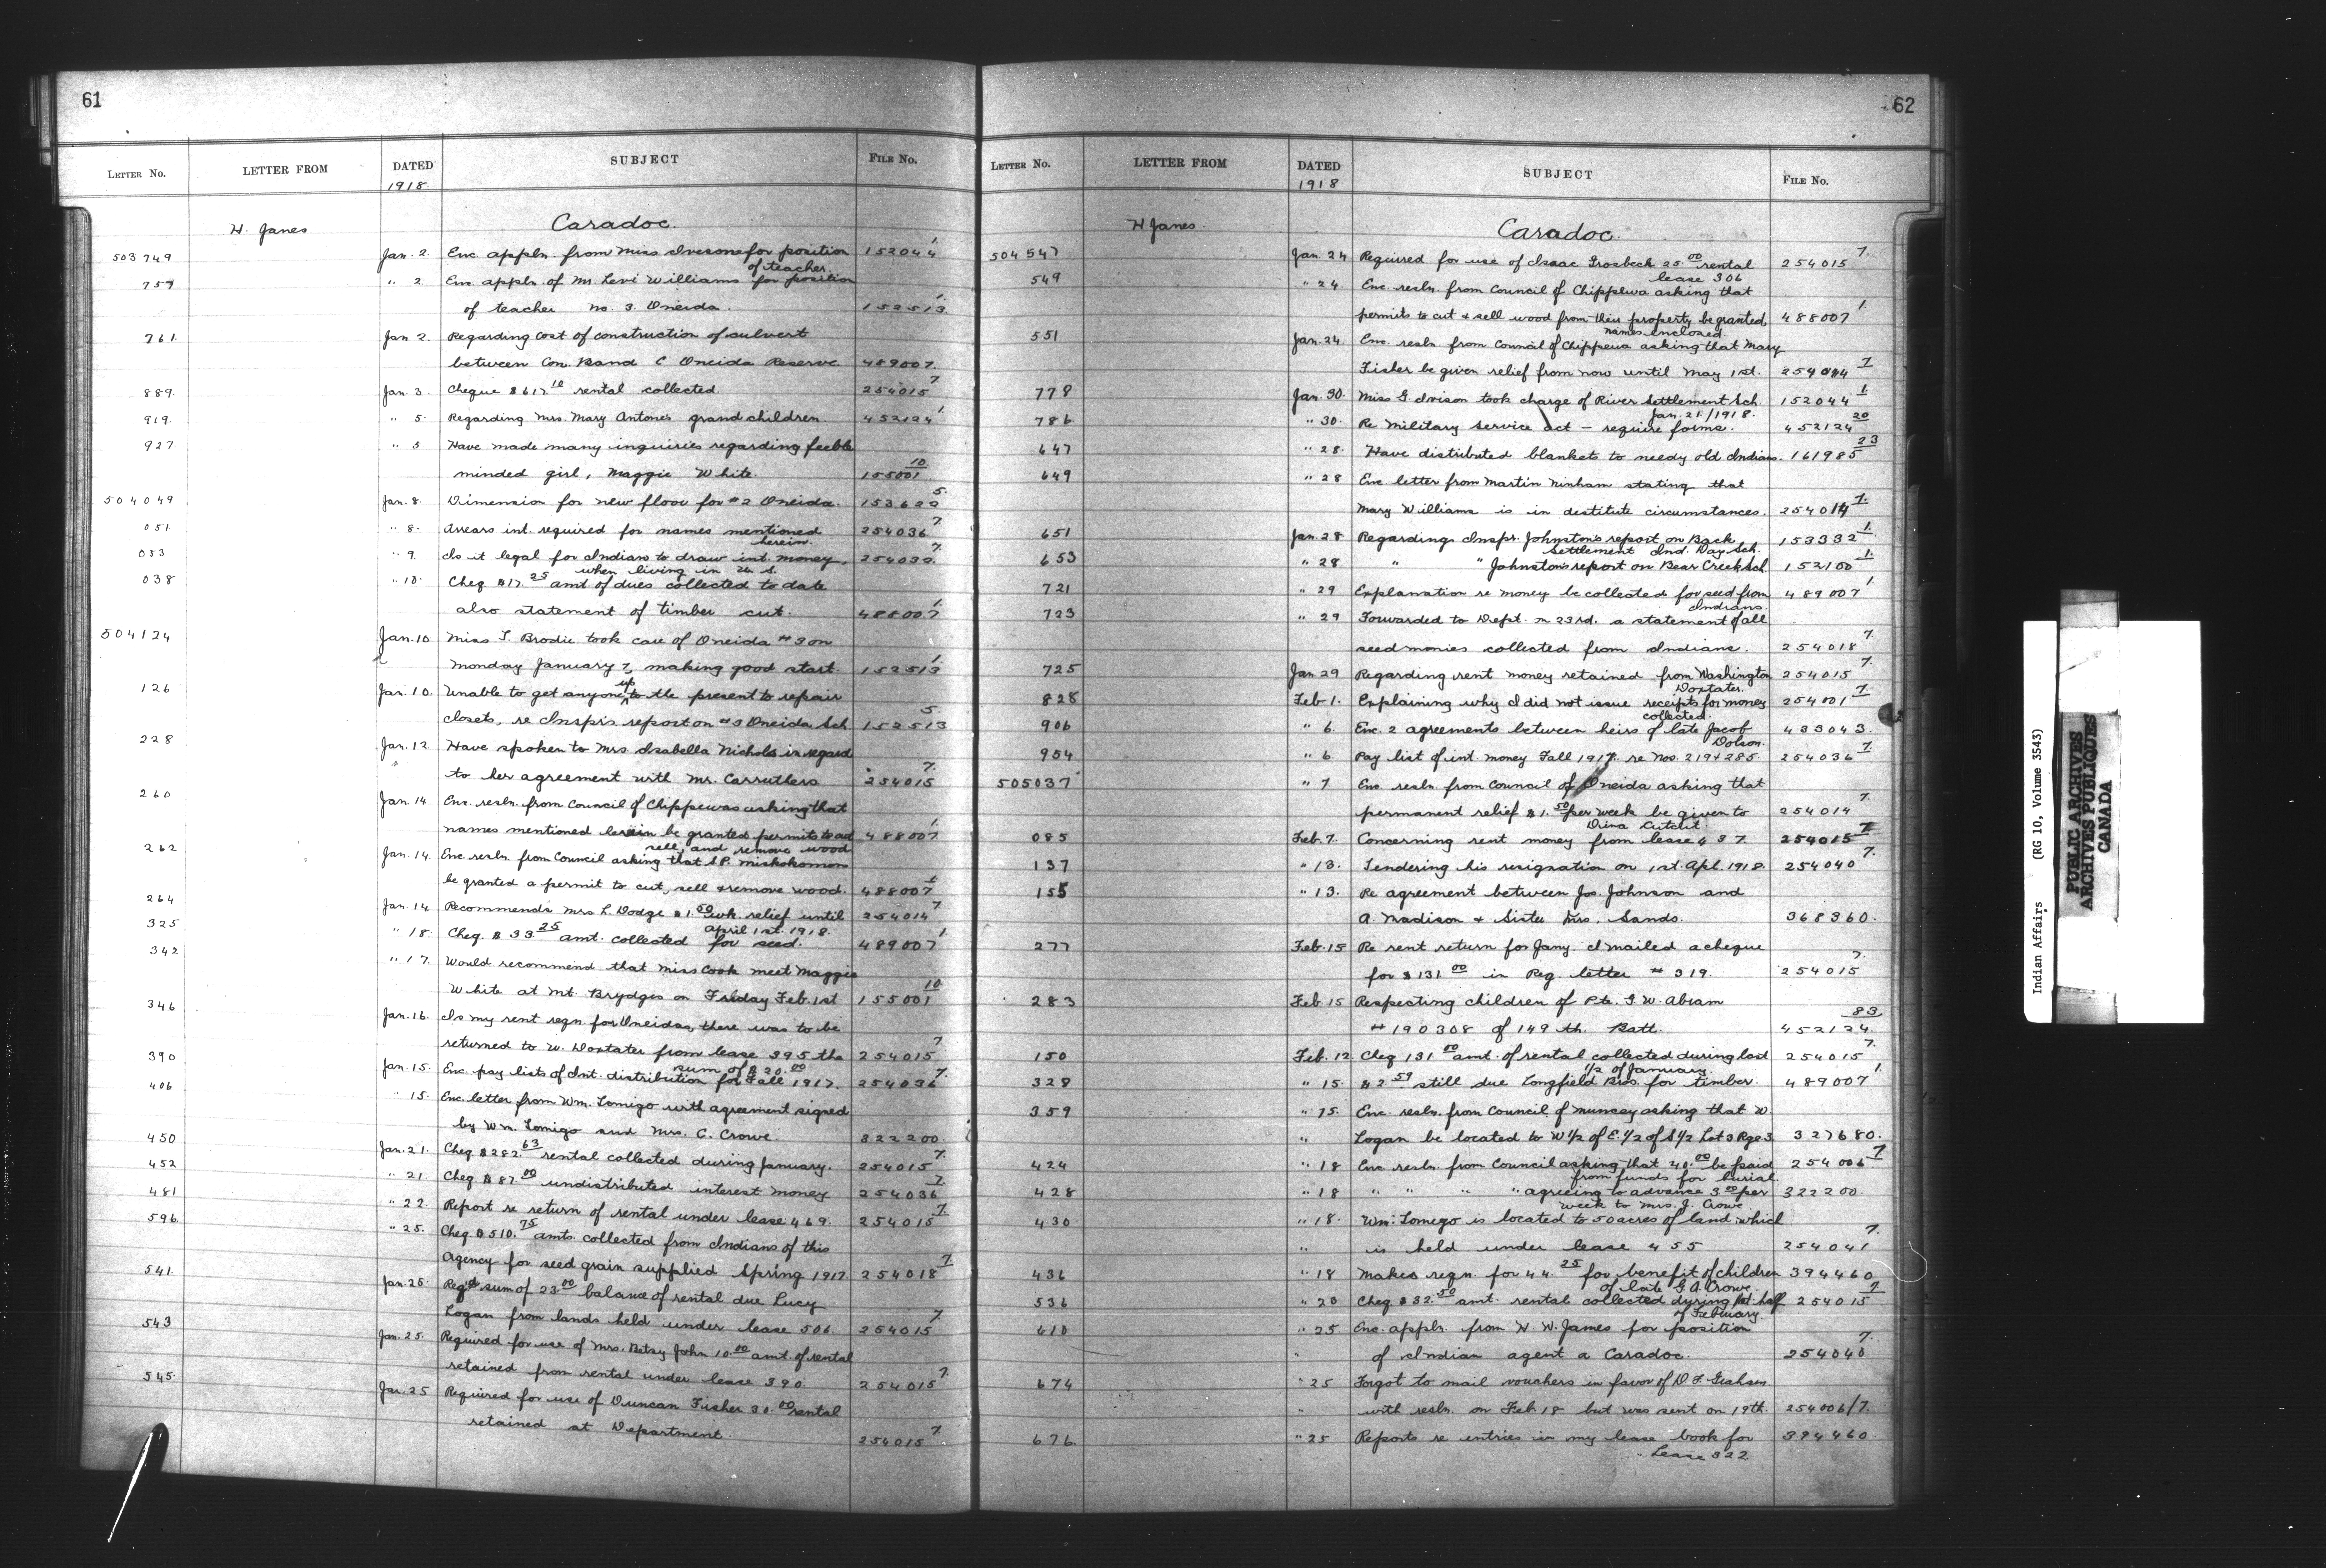 61
LETTER No. LETTER FROM DATED SUBJECT FILE No.
1918
H. Janes Caradoc.
503749 Jan. 2. Enc. appln. from Miss Ivesons for position 152044 1.
of teacher.
757 " 2. Enc. appln. of Mr. Levi Williams for position
of teacher no. 3. Oneida. 152513 1.
761. Jan 2. Regarding cost of construction of culvert
between Con. B and C Oneida Reserve 489007.
889. Jan. 3. Cheque $617.10 rental collected. 254015 7.
919. " 5. Regarding Mrs. Mary Antone's grand children. 452124 1.
927 " 5 Have made many inquiries regarding feeble
minded girl, Maggie White. 155001 10
504049 Jan. 8. Dimension for new floor for #2 Oneida. 153622 5.
051 " 8. Arrears int. required for names mentioned 254036 7
herein.
053 " 9. Is it legal for Indians to draw int. money, 254032. 7.
when living in U. S.
038 " 10. Cheq. $17.25 amt of dues collected to date
also statement of timber cut. 488007 1.
504124 Jan. 10 Miss T. Brodie took care of Oneida #3 on
Monday January 7, making good start. 152513 1.
126 Jan. 10. Unable to get anyone up to the present to repair
closets, re Inspr's report on #3 Oneida Sch. 152513 5.
228 Jan. 12. Have spoken to Mrs. Isabella Nichols in regard
to her agreement with Mr. Carruthers 254015 7.
260 Jan. 14 Enc. resln. from Council of Chippewas asking that
names mentioned herein be granted permits to cut 488007 1.
sell, and remove wood
262 Jan. 14. Enc. resln. from Council asking that S.P. Miskokomon
be granted a permit to cut, sell & remove wood. 488007 1
264 Jan. 14. Recommends Mrs L. Dodge $1.50 wk. relief until 254014 7
April 1st. 1918.
325 " 18 Cheq. $33.25 amt. collected for seed. 489007 1
342 " 17. Would recommend that Miss Cook meet Maggie
White at Mt. Brydges on Friday Feb. 1st 155001 10
346 Jan. 16. In my rent regn for Oneidas, there was to be
returned to W. Doxtater from lease 395 the 254015 7
sum of $20.00
390 Jan. 15. Enc. pay lists of Int. distribution for Fall 1917. 254036 7.
406 " 15. Enc. letter from Wm. Tomigo with agreement signed
by Wm. Tomigo and Mrs. C. Crowe. 322200.
450 Jan. 21. Cheq. $282.63 rental collected during January. 254015 7.
452 " 21. Cheq. $87.00 undistributed interest money 254036 7.
481 " 22. Report re return of rental under lease 469. 254015 7.
596 " 25. Cheq. $510.75 amts. collected from Indians of this
Agency for seed grain supplied Spring 1917. 254018 7
541. Jan. 25. Req'd sum of 23.00 balance of rental due Lucy
Logan from lands held under lease 506. 254015 7.
543 Jan. 25. Required for use of Mrs. Betsy John 10.00 amt. of rental
retained from rental under lease 390. 254015 7.
545. Jan. 25 Required for use of Duncan Fisher 30.00 rental
retained at Department. 254015 7.
62
LETTER No. LETTER FROM DATED SUBJECT FILE No.
1918
H Janes. Caradoc.
504547 Jan. 24 Required for use of Isaac Grosbeck 25.00 rental 254015 7.
lease 306
549 " 24. Enc. resln. from Council of Chippewa asking that
permits to cut & sell wood from their property be granted, 488007 1
names enclosed.
551 Jan. 24. Enc. resln. from Council of Chippewa asking that Mary
Fisher be given relief from now until May 1st. 254014 7
778 Jan. 30. Miss G. Ivison took charge of River Settlement Sch. 152044 1.
Jan. 21./1918.
786 " 30. Re Military Service Act — require forms. 452124 20
647 " 28. Have distributed blankets to needy old Indians. 161985 23
649 " 28 Enc letter from Martin Ninham stating that
Mary Williams is in destitute circumstances. 254014 7.
651 Jan. 28 Regarding Inspr. Johnston's report on Back 153332 1.
Settlement Ind. Day Sch.
653 " 28 " " Johnston's report on Bear Creek Sch. 152100 1.
721 " 29 Explanation re money be collected for seed from 489007 1.
Indians.
723 " 29 Forwarded to Dept. on 23rd. a statement of all
seed monies collected from Indians. 254018 7.
725 Jan 29 Regarding rent money retained from Washington 254015 7.
Doxtater.
828 Feb 1. Explaining why I did not issue receipts for money 254001 7.
collected.
906 " 6. Enc. 2 agreements between heirs of late Jacob 433043.
Dolson.
954 " 6 Pay list of int. money Fall 1917. re Nos. 219 & 285. 254036 7.
505037 " 7 Enc. resln. from Council of Oneida asking that
permanent relief $1.50 per week be given to 254014 7.
Dina Cutcut.
085 Feb. 7. Concerning rent money from lease 437. 254015 7
137 " 13. Tendering his resignation on 1st. Apl. 1918. 254040 7.
155 " 13. Re agreement between Jos. Johnson and
A. Madison & Sister Mrs. Sands. 368360.
277 Feb. 15 Re rent return for Jany. I mailed a cheque
for $131.00 in Reg. letter #319. 254015 7.
283 Feb. 15 Respecting children of Pte. G. W. Abram
#190308 of 149 th. Batt. 452124. 83
150 Feb. 12 Cheq 131.00 amt. of rental collected during last 254015 7.
1/2 of January.
328 " 15. $2.59 still due Longfield Bros. for timber. 489007 1.
359 " 15. Enc. resln. from Council of Muncey asking that W.
" Logan be located to W 1/2 of E. 1/2 of S 1/2 Lot 3 Rge 3. 327680.
424 " 18 Enc. resln. from Council asking that 40.00 be paid 254006 7
from funds for burial.
428 " 18 " " " " agreeing to advance 3.00 per 322200.
week to Mrs. J. Crowe
430 " 18. Wm. Tomigo is located to 50 acres of land which
" is held under lease 455 254041 7.
436 " 18 Makes regn. for 44.25 for benefit of children 394460
of late G. A. Crowe.
536 " 23 Cheq $32.50 amt. rental collected during 1st. half 254015 7
of February.
610 " 25. Enc. appln. from H. W. James for position
" of Indian agent a Caradoc. 254040 7.
674 " 25 Forgot to mail vouchers in favor of D. F.
" with resln. on Feb 18 but was sent on 19th. 254006/7.
676 " 25 Reports re entries in my lease book for 394460
Lease 322
Indian Affairs (RG 10, Volume 3543)
PUBLIC ARCHIVES
ARCHIVES PUBLIQUES
CANADA